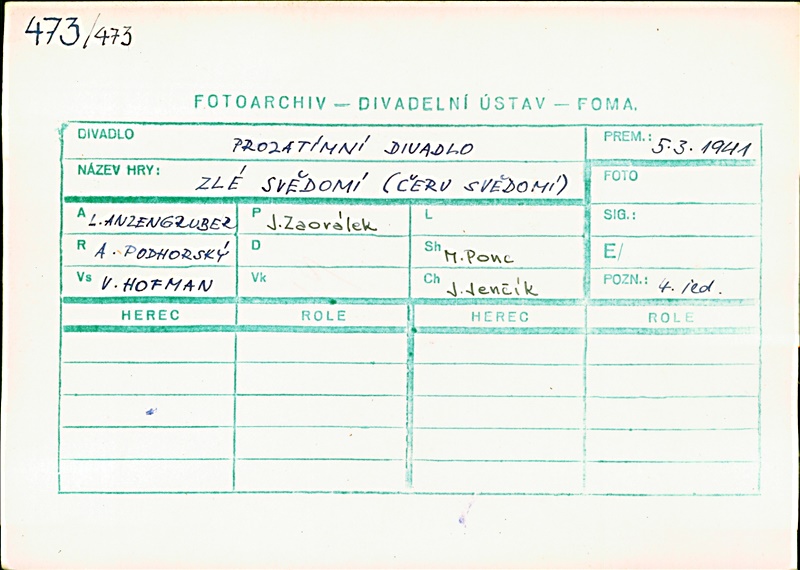 473/473
FOTOARCHIV — DIVADELNÍ ÚSTAV — FOMA.
DIVADLO PROZATÍMNÍ DIVADLO PREM.: 5.3.1941
NÁZEV HRY: ZLÉ SVĚDOMÍ (ČERV SVĚDOMÍ) FOTO
A L. ANZENGRUBER P J. Zaorálek L SIG.:
R A. PODHORSKÝ D Sh M. Ponc E/
Vs V. HOFMAN Vk Ch J. Jenčík POZN.: 4. jed.
HEREC ROLE HEREC ROLE